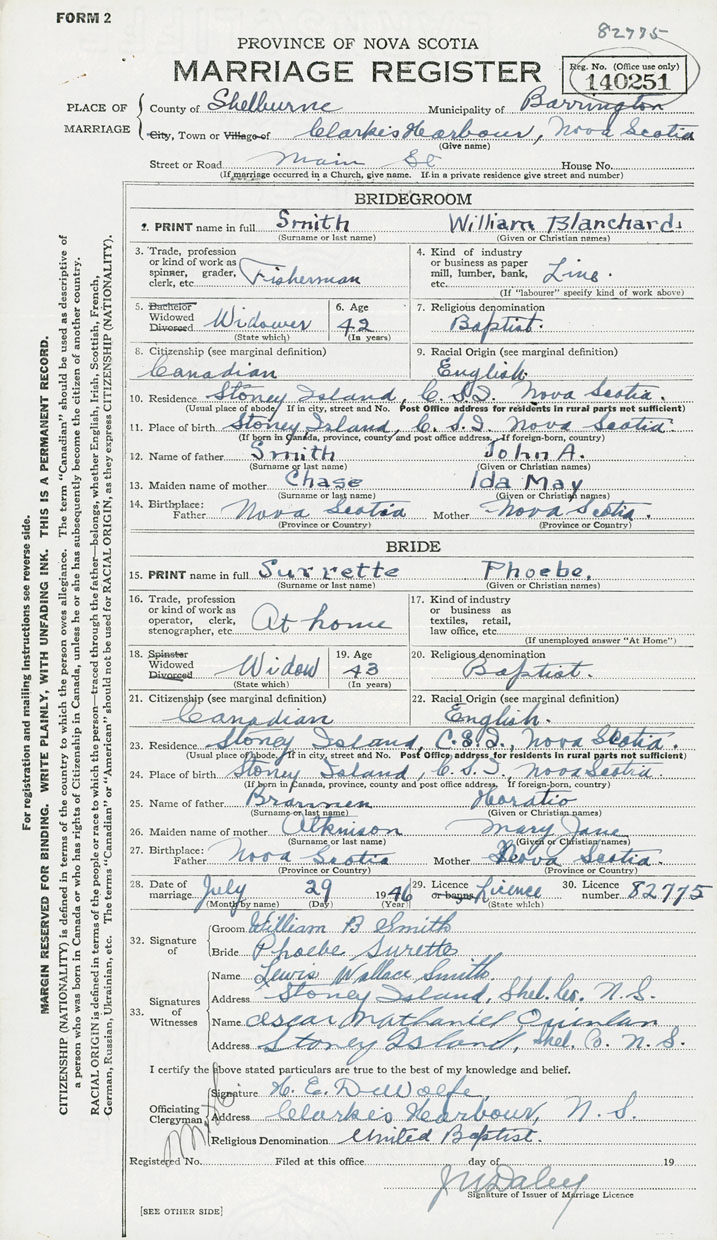 FORM 2
82775
PROVINCE OF NOVA SCOTIA
MARRIAGE REGISTER
Reg. No. (Office use only)
140251
PLACE OF MARRIAGE
County of Shelburne Municipality of Barrington
City, Town or Village of Clarkes Harbour, Nova Scotia
(Give name)
Street or Road Main St House No.
(If marriage occurred in a Church, give name. If in a private residence give street and number)
BRIDEGROOM
2. PRINT name in full Smith William Blanchard
(Surname or last name) (Given or Christian names)
3. Trade, profession or kind of work as spinner, grader, clerk, etc. Fisherman
4. Kind of industry or business as paper mill, lumber, bank, etc. Line.
(If "labourer" specify kind of work above)
5. Bachelor Widowed Divorced Widower (State which)
6. Age 42 (In years)
7. Religious denomination Baptist.
8. Citizenship (see marginal definition) Canadian
9. Racial Origin (see marginal definition) English.
10. Residence Stoney Island, C.S.I. Nova Scotia.
(Usual place of abode. If in city, street and No. Post Office address for residents in rural parts not sufficient)
11. Place of birth Stoney Island, C.S.I. Nova Scotia.
(If born in Canada, province, county and post office address. If foreign-born, country)
12. Name of father Smith John A.
(Surname or last name) (Given or Christian names)
13. Maiden name of mother Chase Ida May
(Surname or last name) (Given or Christian names)
14. Birthplace: Father Nova Scotia Mother Nova Scotia.
(Province or Country) (Province or Country)
BRIDE
15. PRINT name in full Surrette Phoebe.
(Surname or last name) (Given or Christian names)
16. Trade, profession or kind of work as operator, clerk, stenographer, etc. At home
17. Kind of industry or business as textiles, retail, law office, etc.
(If unemployed answer "At Home")
18. Spinster Widowed Divorced Widow (State which)
19. Age 43 (In years)
20. Religious denomination Baptist.
21. Citizenship (see marginal definition) Canadian
22. Racial Origin (see marginal definition) English.
23. Residence Stoney Island, C.S.I., Nova Scotia.
(Usual place of abode. If in city, street and No. Post Office address for residents in rural parts not sufficient)
24. Place of birth Stoney Island, C.S.I., Nova Scotia.
(If born in Canada, province, county and post office address. If foreign-born, country)
25. Name of father Brannen Horatio
(Surname or last name) (Given or Christian names)
26. Maiden name of mother Atkinson Mary Jane
(Surname or last name) (Given or Christian names)
27. Birthplace: Father Nova Scotia Mother Nova Scotia.
(Province or Country) (Province or Country)
28. Date of marriage July 29 1946
(Month by name) (Day) (Year)
29. Licence or banns Licence (State which)
30. Licence number 82775
32. Signature of
Groom William B Smith
Bride Phoebe Surette
33. Signatures of Witnesses
Name Lewis Wallace Smith.
Address Stoney Island, Shel. Co. N.S.
Name Oscar Nathaniel Quinlan
Address Stoney Island, Shel. Co. N.S.
I certify the above stated particulars are true to the best of my knowledge and belief.
Officiating Clergyman
Signature H. E. DeWolfe,
Address Clarkes Harbour, N.S.
Religious Denomination United Baptist.
Registered No. Filed at this office day of 19
Signature of Issuer of Marriage Licence
[SEE OTHER SIDE]
For registration and mailing instructions see reverse side.
MARGIN RESERVED FOR BINDING. WRITE PLAINLY, WITH UNFADING INK. THIS IS A PERMANENT RECORD.
CITIZENSHIP (NATIONALITY) is defined in terms of the country to which the person owes allegiance. The term "Canadian" should be used as descriptive of
a person who was born in Canada or who has rights of Citizenship in Canada, unless he or she has subsequently become the citizen of another country.
RACIAL ORIGIN is defined in terms of the people or race to which the person—traced through the father—belongs, whether English, Irish, Scottish, French,
German, Russian, Ukrainian, etc. The terms "Canadian" or "American" should not be used for RACIAL ORIGIN, as they express CITIZENSHIP (NATIONALITY).